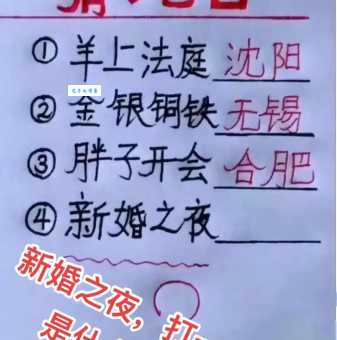 ① 羊上法庭 沈阳
② 金银铜铁 无锡
③ 胖子开会 合肥
④ 新婚之夜
新婚之夜，打
是什